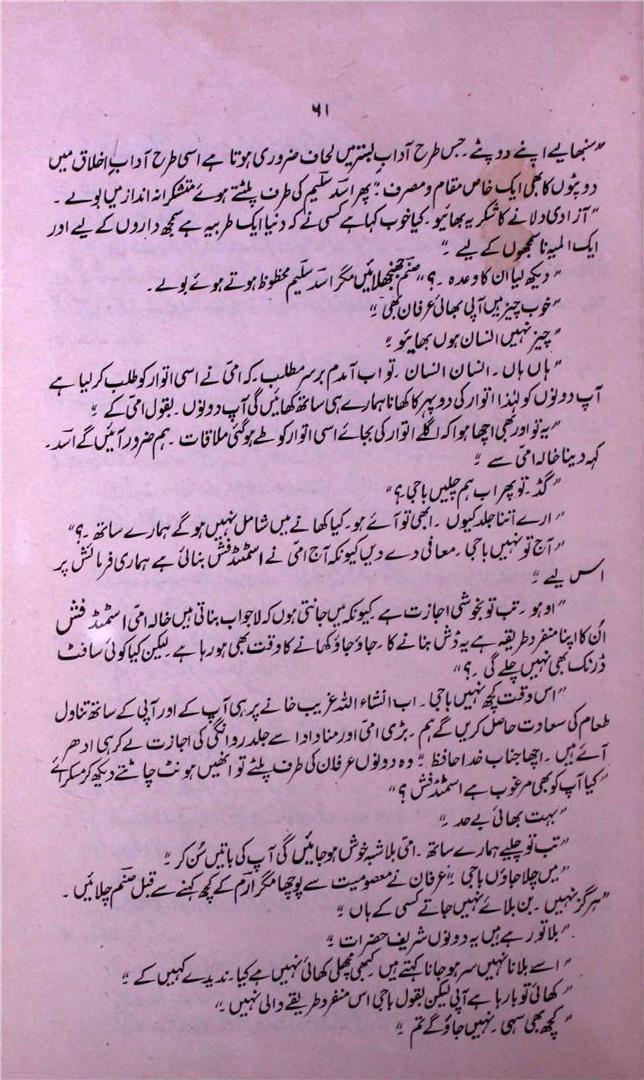 ۶۱
”سنبھالیے اپنے دوپٹے۔ جس طرح آدابِ بستر میں لحاف ضروری ہوتا ہے اسی طرح آدابِ اخلاق میں
دوپٹوں کا بھی ایک خاص مقام و مصرف۔“ پھر اسد سلیم کی طرف پلٹتے ہوئے متشکرانہ انداز میں بولے۔
”آزادی دلانے کا شکریہ بھائیو۔ کیا خوب کہا ہے کسی نے کہ دنیا ایک طربیہ ہے سمجھ داروں کے لیے اور
ایک المیہ ناسمجھوں کے لیے۔“
”دیکھ لیا ان کا وعدہ۔؟“ صنم جھنجھلائیں مگر اسد سلیم محظوظ ہوتے ہوئے بولے۔
”خوب چیز ہیں آپی بھائی عرفان بھی۔“
”چیز نہیں انسان ہوں بھائیو۔“
”ہاں ہاں۔ انسان انسان۔ تو اب آمدم برسر مطلب۔ کہ امی نے اسی اتوار کو طلب کر لیا ہے
آپ دونوں کو لہٰذا اتوار کی دوپہر کا کھانا ہمارے ہی ساتھ کھائیں گی آپ دونوں۔ بقول امی کے۔“
”یہ تو اور بھی اچھا ہوا کہ اگلے اتوار کی بجائے اسی اتوار کو طے ہو گئی ملاقات۔ ہم ضرور آئیں گے اسد۔
کہہ دینا خالہ امی سے۔“
”گڈ۔ تو پھر اب ہم چلیں باجی؟“
”ارے اتنا جلد کیوں۔ ابھی تو آئے ہو۔ کیا کھانے میں شامل نہیں ہو گے ہمارے ساتھ۔؟“
”آج تو نہیں باجی۔ معافی دے دیں کیونکہ آج امی نے اسٹمڈ فش بنائی ہے ہماری فرمائش پر
اس لیے۔“
”اوہو۔ تب تو بخوشی اجازت ہے کیونکہ میں جانتی ہوں کہ لاجواب بناتی ہیں خالہ امی اسٹمڈ فش
اُن کا اپنا منفرد طریقہ ہے یہ ڈش بنانے کا۔ جاؤ جاؤ کھانے کا وقت بھی ہو رہا ہے لیکن کیا کوئی سافٹ
ڈرنک بھی نہیں چلے گی۔؟“
”اس وقت کچھ نہیں باجی۔ اب انشاء اللہ غریب خانے پر ہی آپ کے اور آپی کے ساتھ تناول
طعام کی سعادت حاصل کریں گے ہم۔ بڑی امی اور منا دادا سے جلد روانگی کی اجازت لے کر ہی ادھر
آئے ہیں۔ اچھا جناب خدا حافظ۔“ وہ دونوں عرفان کی طرف پلٹے تو انھیں ہونٹ چاٹتے دیکھ کر مسکرائے
”کیا آپ کو بھی مرغوب ہے اسٹمڈ فش؟“
”بہت بھائی بے حد۔“
”تب تو چلیے ہمارے ساتھ۔ امی بلا شبہ خوش ہو جائیں گی آپ کی باتیں سُن کر۔“
”میں چلا جاؤں باجی۔“ عرفان نے معصومیت سے پوچھا مگر ارم کے کچھ کہنے سے قبل صنم چلائیں۔
”ہرگز نہیں۔ بن بلائے نہیں جاتے کسی کے ہاں۔“
”بلا تو رہے ہیں یہ دونوں شریف حضرات۔“
”اسے بلانا نہیں سر ہو جانا کہتے ہیں۔ کبھی مچھلی کھائی نہیں ہے کیا۔ ندیدے کہیں کے۔“
”کھائی تو بارہا ہے آپی لیکن بقول باجی اس منفرد طریقے والی نہیں۔“
”کچھ بھی سہی۔ نہیں جاؤ گے تم۔“